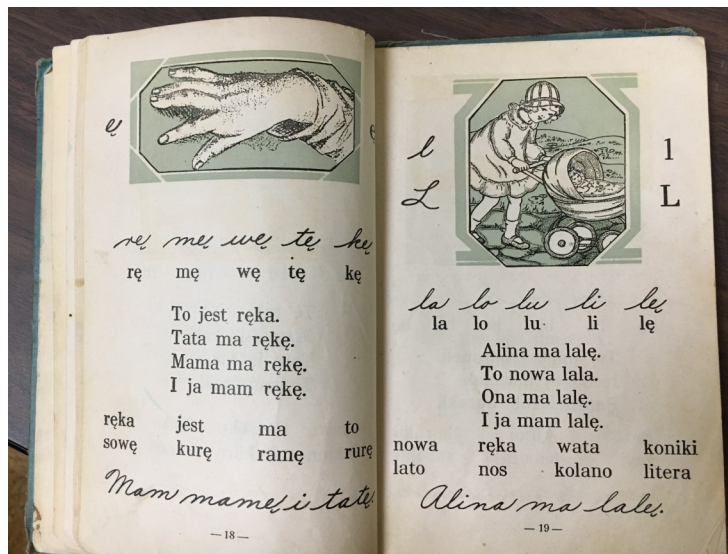 ę
rę mę wę tę kę
rę mę wę tę kę
To jest ręka.
Tata ma rękę.
Mama ma rękę.
I ja mam rękę.
ręka jest ma to
sowę kurę ramę rurę
Mam mamę i tatę.
— 18 —
l l
L L
la lo lu li lę
la lo lu li lę
Alina ma lalę.
To nowa lala.
Ona ma lalę.
I ja mam lalę.
nowa ręka wata koniki
lato nos kolano litera
Alina ma lalę.
— 19 —